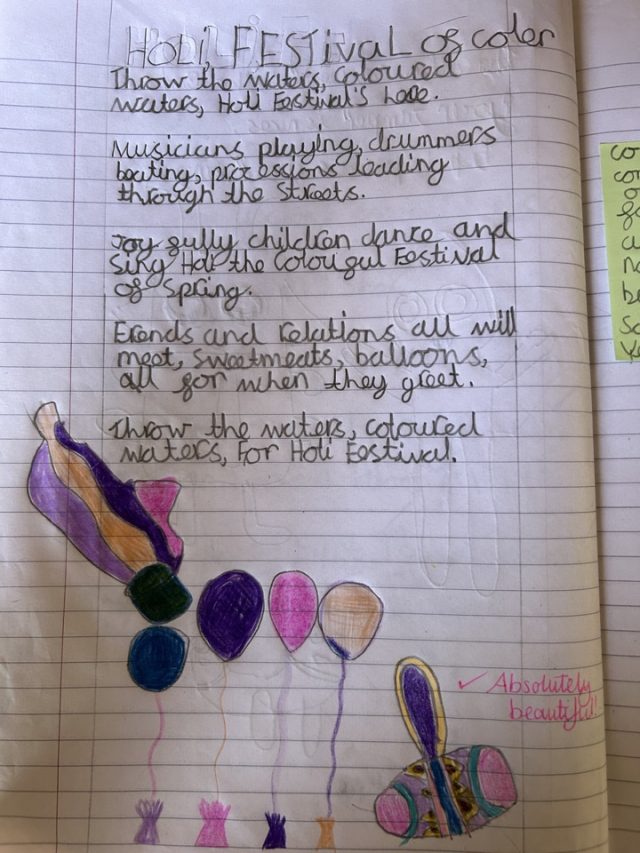 Holi, FESTival of coler
Throw the waters, coloured
waters, Holi Festival's here.
Musicians playing, drummers
beating, processions leading
through the streets.
Joy fully children dance and
sing Holi the Colourful Festival
of spring.
Friends and relations all will
meet, sweetmeats, balloons,
all for when they greet.
Throw the waters, coloured
waters, For Holi Festival.
✓ Absolutely
beautiful!